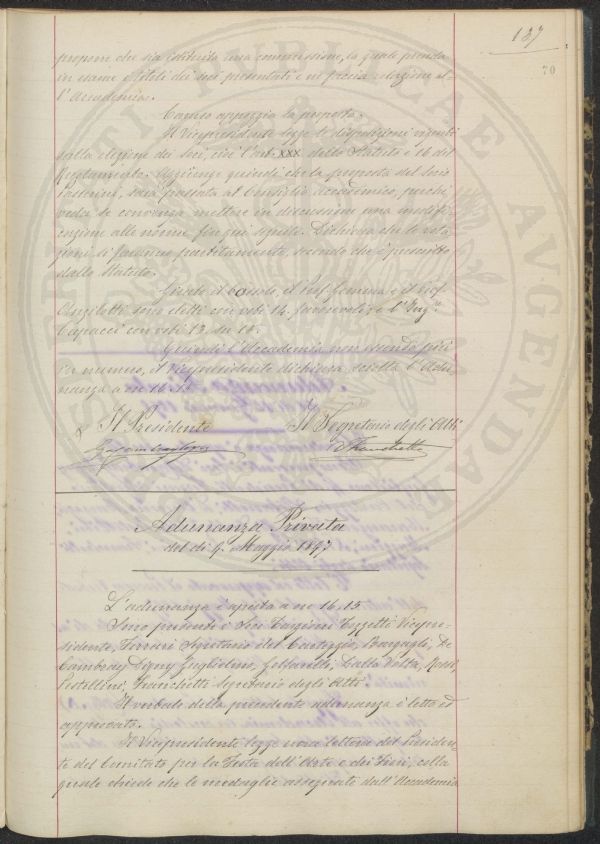 187
70
propone che sia istituita una commissione, la quale prenda
in esame i titoli dei soci presentati e ne faccia relazione al-
l'Accademia.
Caruso appoggia la proposta.
Il Vicepresidente legge le disposizioni vigenti
sulla elezione dei soci, cioè l'art. XXX dello Statuto e 16 del
Regolamento. Aggiunge quindi che la proposta del socio
sarà passata al Consiglio accademico, perchè
veda se convenga mettere in discussione una modifi-
cazione alle norme fin qui seguite. Dichiara che le vota-
zioni si faranno partitamente, secondo che è prescritto
dallo Statuto.
Girato il bossolo, il Prof. e il Prof.
Anzilotti sono eletti con voti 14 favorevoli, e l'Ing.re
Capacci con voti 13, su 16.
Quindi l'Accademia non essendo più
in numero, il Vicepresidente dichiara sciolta l'Adu-
nanza a ore 16.15.
Il Presidente
Il Segretario degli Atti
Franchetti
Adunanza Privata
del dì 9. Maggio 1897
L'adunanza è aperta a ore 16,15.
Sono presenti i Soci Targioni Tozzetti Vicepre-
sidente, Ferrari Segretario del Carteggio, Bargagli, De
Cambray Digny Guglielmo, Dalla Volta, Rossi,
Pestellini, Franchetti segretario degli Atti.
Il verbale della precedente adunanza è letto ed
approvato.
Il Vicepresidente legge una lettera del Presiden-
te del Comitato per la Festa dell'Arte e dei Fiori, colla
quale chiede che le medaglie assegnate dall'Accademia